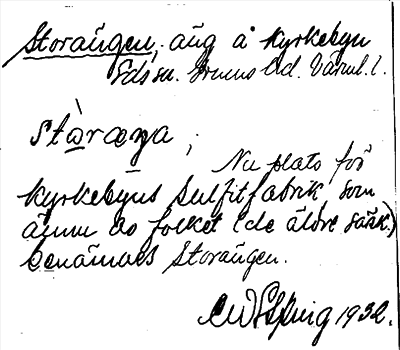 Storängen, äng å Kyrkebyn
Eds sn. Grums hd. Värml. l.
stòræŋa,
Nu plats för
Kyrkebyns Sulfitfabrik som
ännu av folket (de äldre särsk.)
benämnes Storängen.
1932.